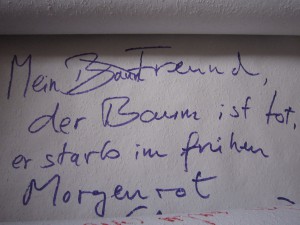 Mein Freund,
der Baum ist tot,
er starb im frühen
Morgenrot